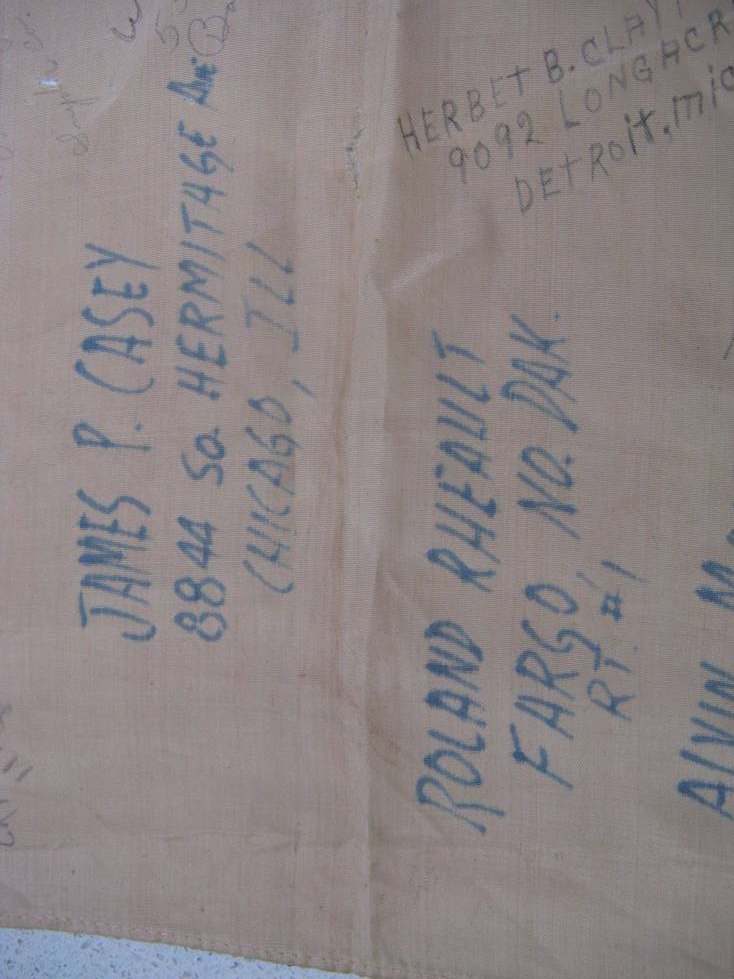 HERBET B. CLAY
9092 LONGACR
DETROIT, MIC
JAMES P. CASEY
8844 SO. HERMITAGE AVE
CHICAGO, ILL
ROLAND RHEAULT
FARGO, NO. DAK.
RT. #1
ALVIN M